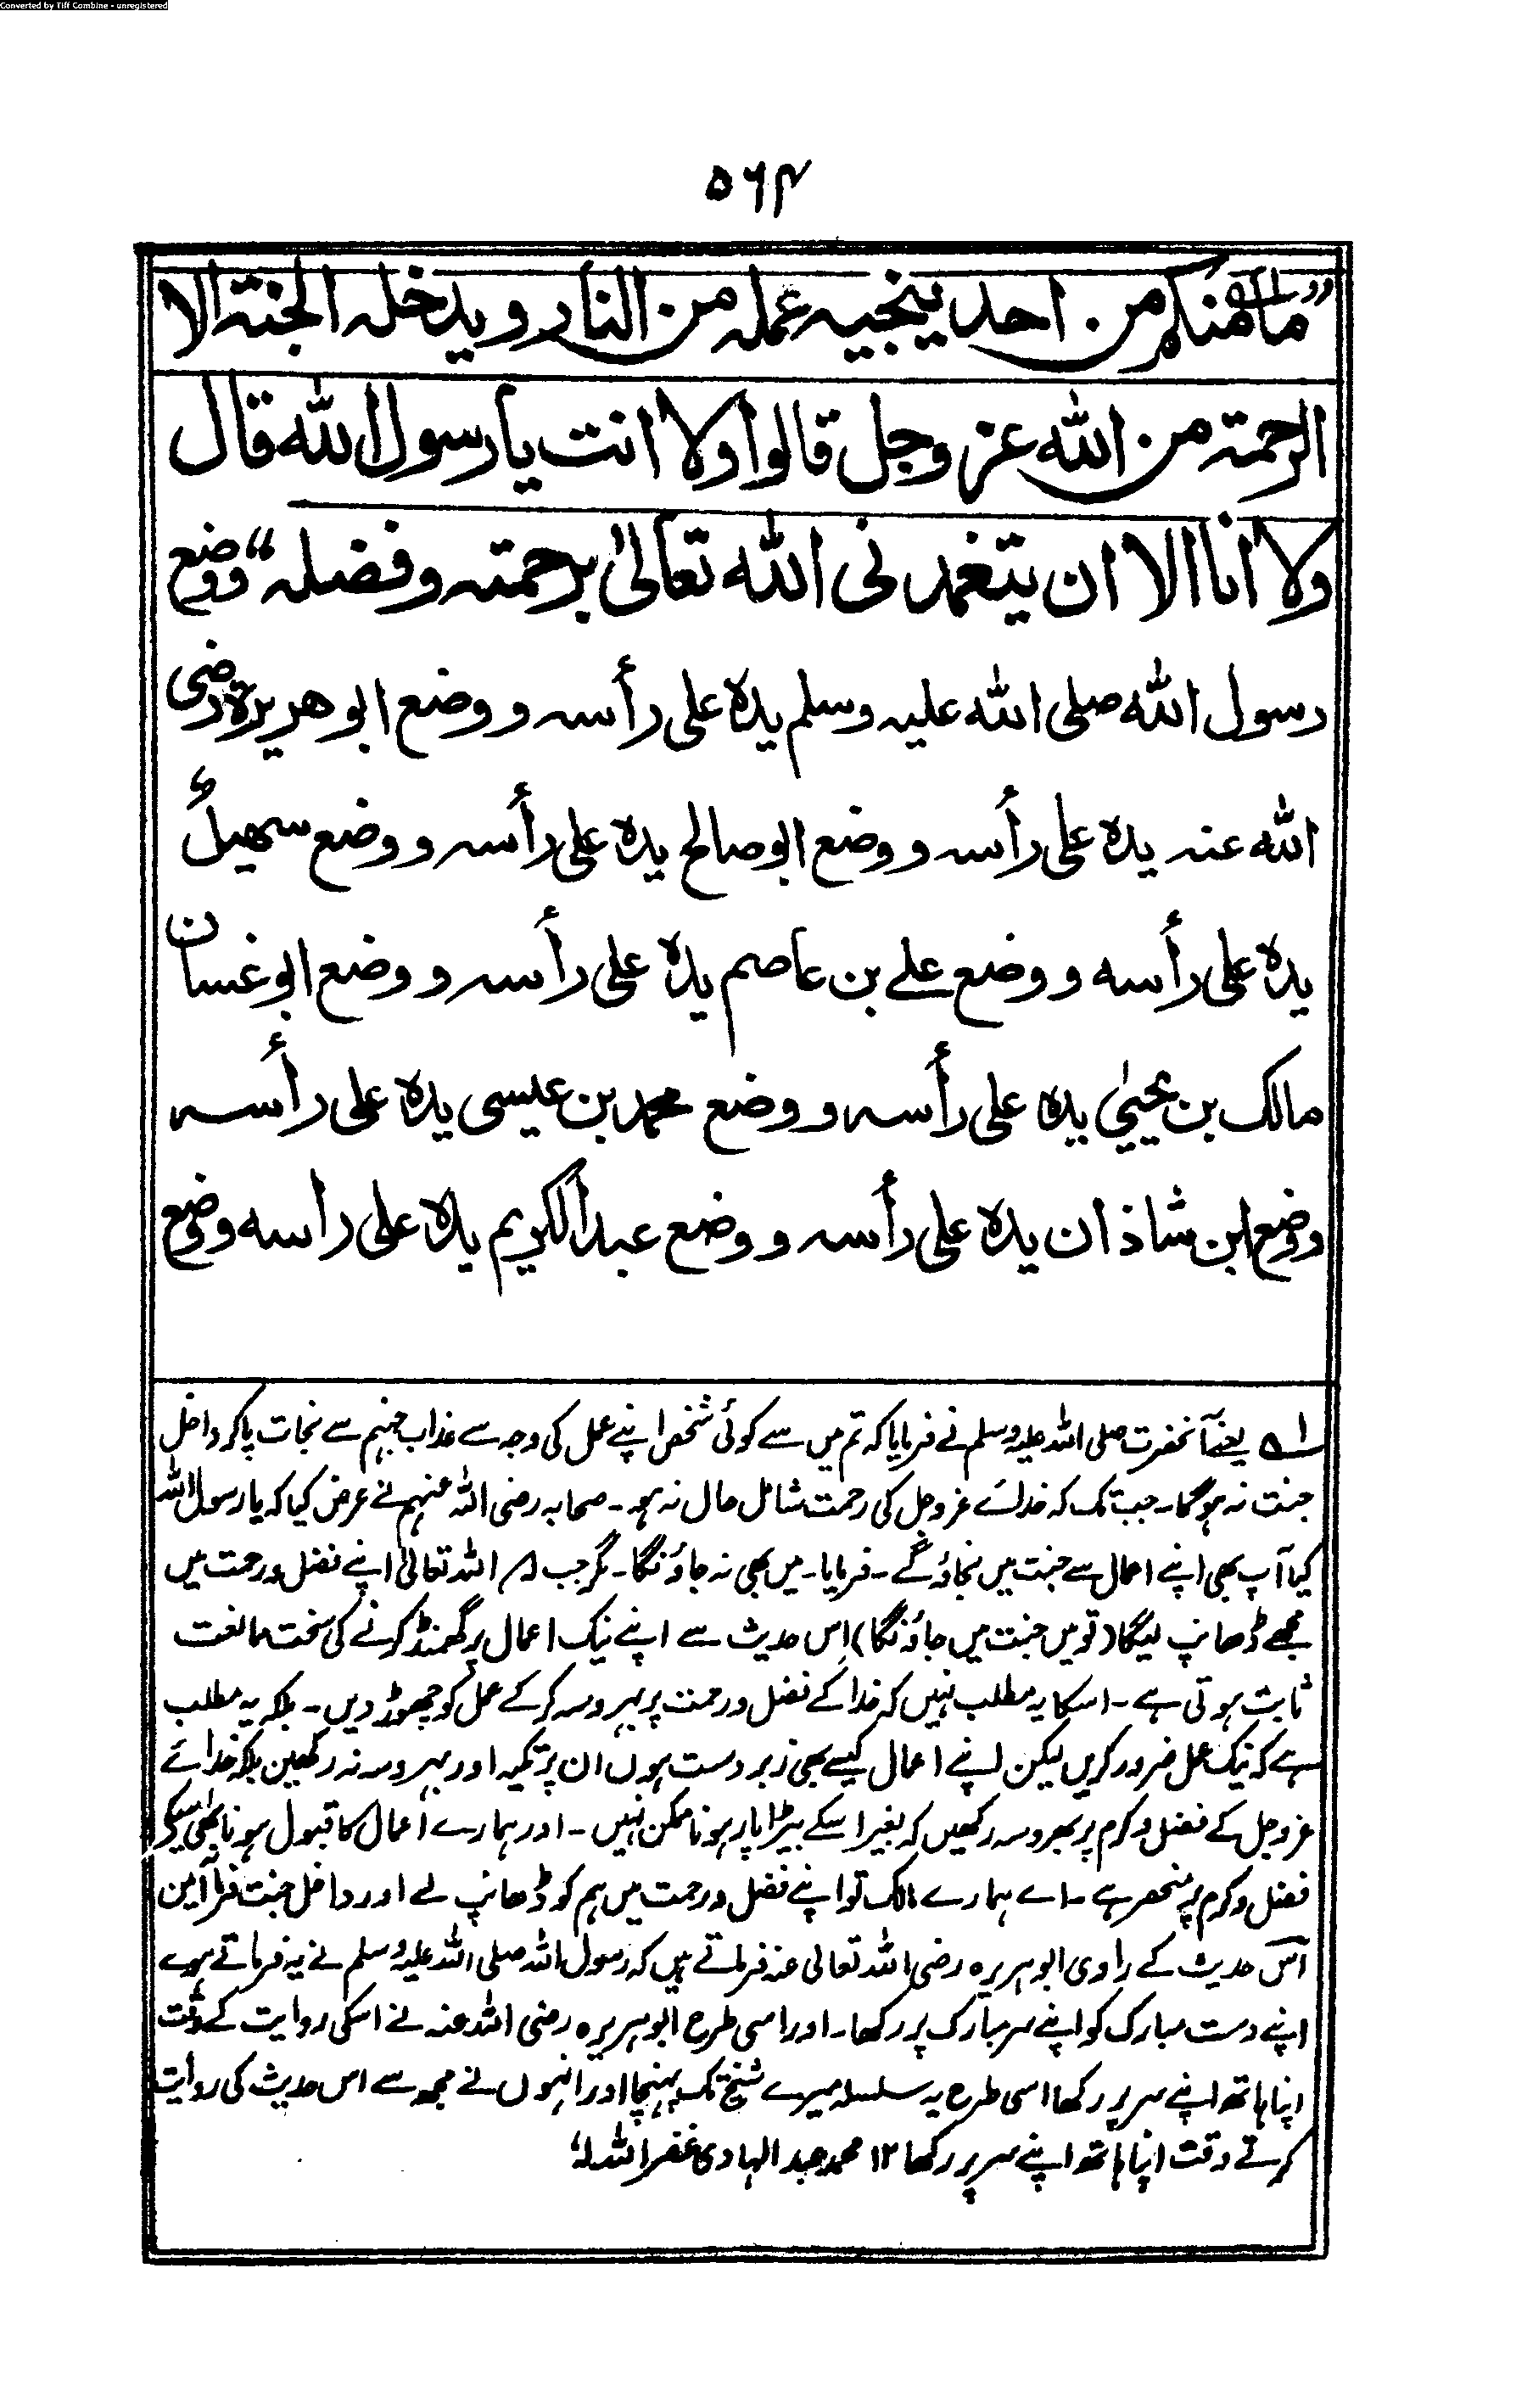 Converted by Tiff Combine - unregistered
۵۶۴
”ما منکم من احد ینجیه عمله من النار و یدخله الجنة الا
الرحمة من الله عز وجل قالوا ولا انت یا رسول الله قال
ولا انا الا ان یتغمدنی الله تعالیٰ برحمته و فضله“ ووضع
رسول الله صلی الله علیه وسلم یده علی رأسه و وضع ابو هریرة رضی
الله عنه یده علی رأسه و وضع ابو صالح یده علی رأسه و وضع سهیلؒ
یده علی رأسه و وضع علے بن عاصم یده علی رأسه و وضع ابو غسان
مالک بن یحییٰ یده علی رأسه و وضع محمد بن عیسی یده علی رأسه
ووضع ابن شاذان یده علی رأسه و وضع عبد الکریم یده علی راسه ووضع
۱؎ یعنے آنحضرت صلی اللہ علیہ وسلم نے فرمایا کہ تم میں سے کوئی شخص اپنے عمل کی وجہ سے عذاب جہنم سے نجات پا کر داخل
جنت نہ ہوگا۔ جب تک کہ خدائے عز وجل کی رحمت شامل حال نہ ہو۔ صحابہ رضی اللہ عنہم نے عرض کیا کہ یا رسول اللہ
کیا آپ بھی اپنے اعمال سے جنت میں نجاؤ گے۔ فرمایا۔ میں بھی نہ جاؤنگا۔ مگر جب اللہ تعالیٰ اپنے فضل و رحمت میں
مجھے ڈھانپ لیگا (تو میں جنت میں جاؤنگا) اِس حدیث سے اپنے نیک اعمال پر گھمنڈ کرنے کی سخت ممانعت
ثابت ہوتی ہے۔ اسکا یہ مطلب نہیں کہ خدا کے فضل و رحمت پر بہروسہ کر کے عمل کو چھوڑ دیں۔ بلکہ یہ مطلب
ہے کہ نیک عمل ضرور کریں لیکن اپنے اعمال کیسے بھی زبردست ہوں ان پر تکیہ اور بہروسہ نہ رکھین بلکہ خدائے
عز وجل کے فضل و کرم پر بھروسہ رکھیں کہ بغیر اسکے بیڑا پار ہونا ممکن نہیں۔ اور ہمارے اعمال کا قبول ہونا بھی اسیکے
فضل و کرم پر منحصر ہے۔ اے ہمارے مالک تو اپنے فضل و رحمت میں ہم کو ڈھانپ لے اور داخل جنت فرما آمین
اس حدیث کے راوی ابو ہریرہ رضی اللہ تعالی عنہ فرماتے ہیں کہ رسول اللہ صلی اللہ علیہ وسلم نے یہ فرماتے ہوے
اپنے دست مبارک کو اپنے سر مبارک پر رکھا۔ اور اسی طرح ابو ہریرہ رضی اللہ عنہ نے اسکی روایت کے وقت
اپنا ہاتھ اپنے سر پر رکھا اسی طرح یہ سلسلہ میرے شیخ تک پہنچا اور انہوں نے مجھ سے اس حدیث کی روایت
کرتے وقت اپنا ہاتھ اپنے سر پر رکھا ۱۲ محمد عبد الہادی غفر اللہ لہٗ